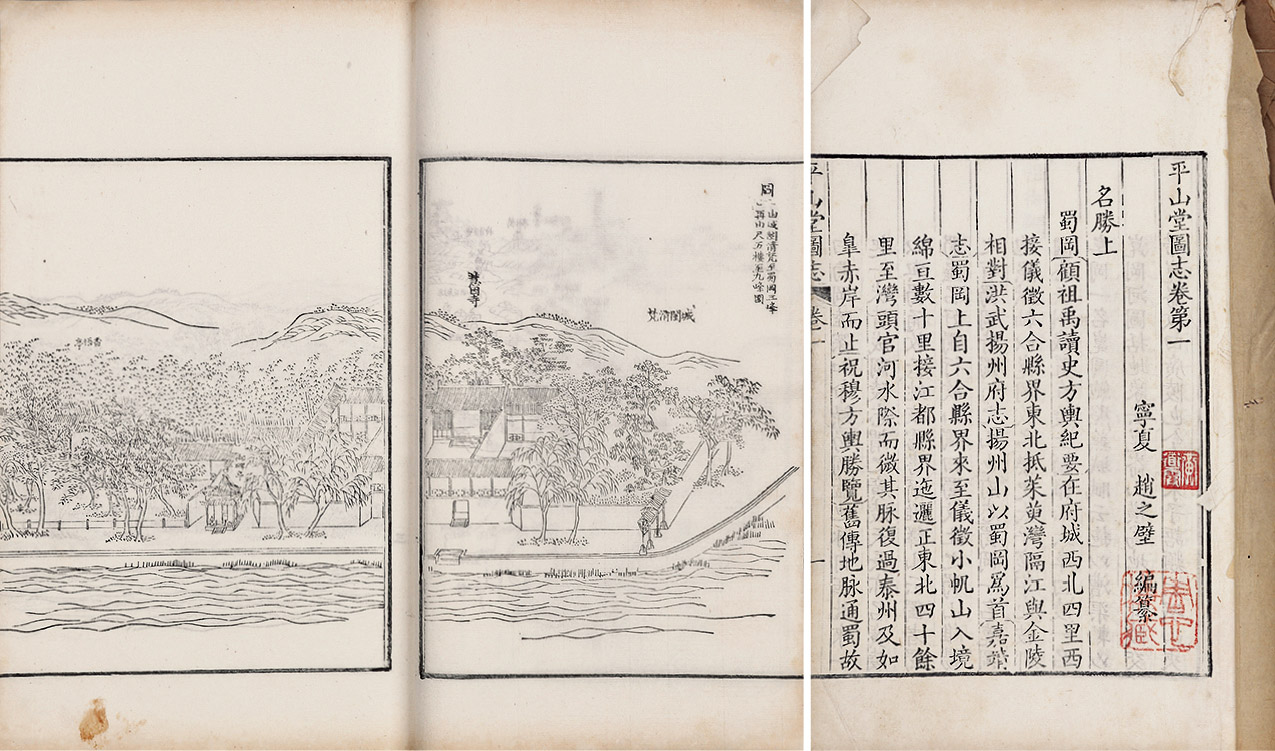 平山堂圖志卷第一
寧夏 趙之壁 編纂
名勝上
蜀岡顧祖禹讀史方輿紀要在府城西北四里西
接儀徵六合縣界東北抵茱萸灣隔江與金陵
相對洪武揚州府志揚州山以蜀岡爲首嘉靖
志蜀岡上自六合縣界來至儀徵小帆山入境
綿亘數十里接江都縣界迤邐正東北四十餘
里至灣頭官河水際而微其脉復過泰州及如
皐赤岸而止祝穆方輿勝覽舊傳地脉通蜀故
平山堂圖志 卷一 一
圖一
由城闉清梵至蜀岡三峰
再由尺五樓至九峰園
城闉清梵
慧因寺
香悟亭